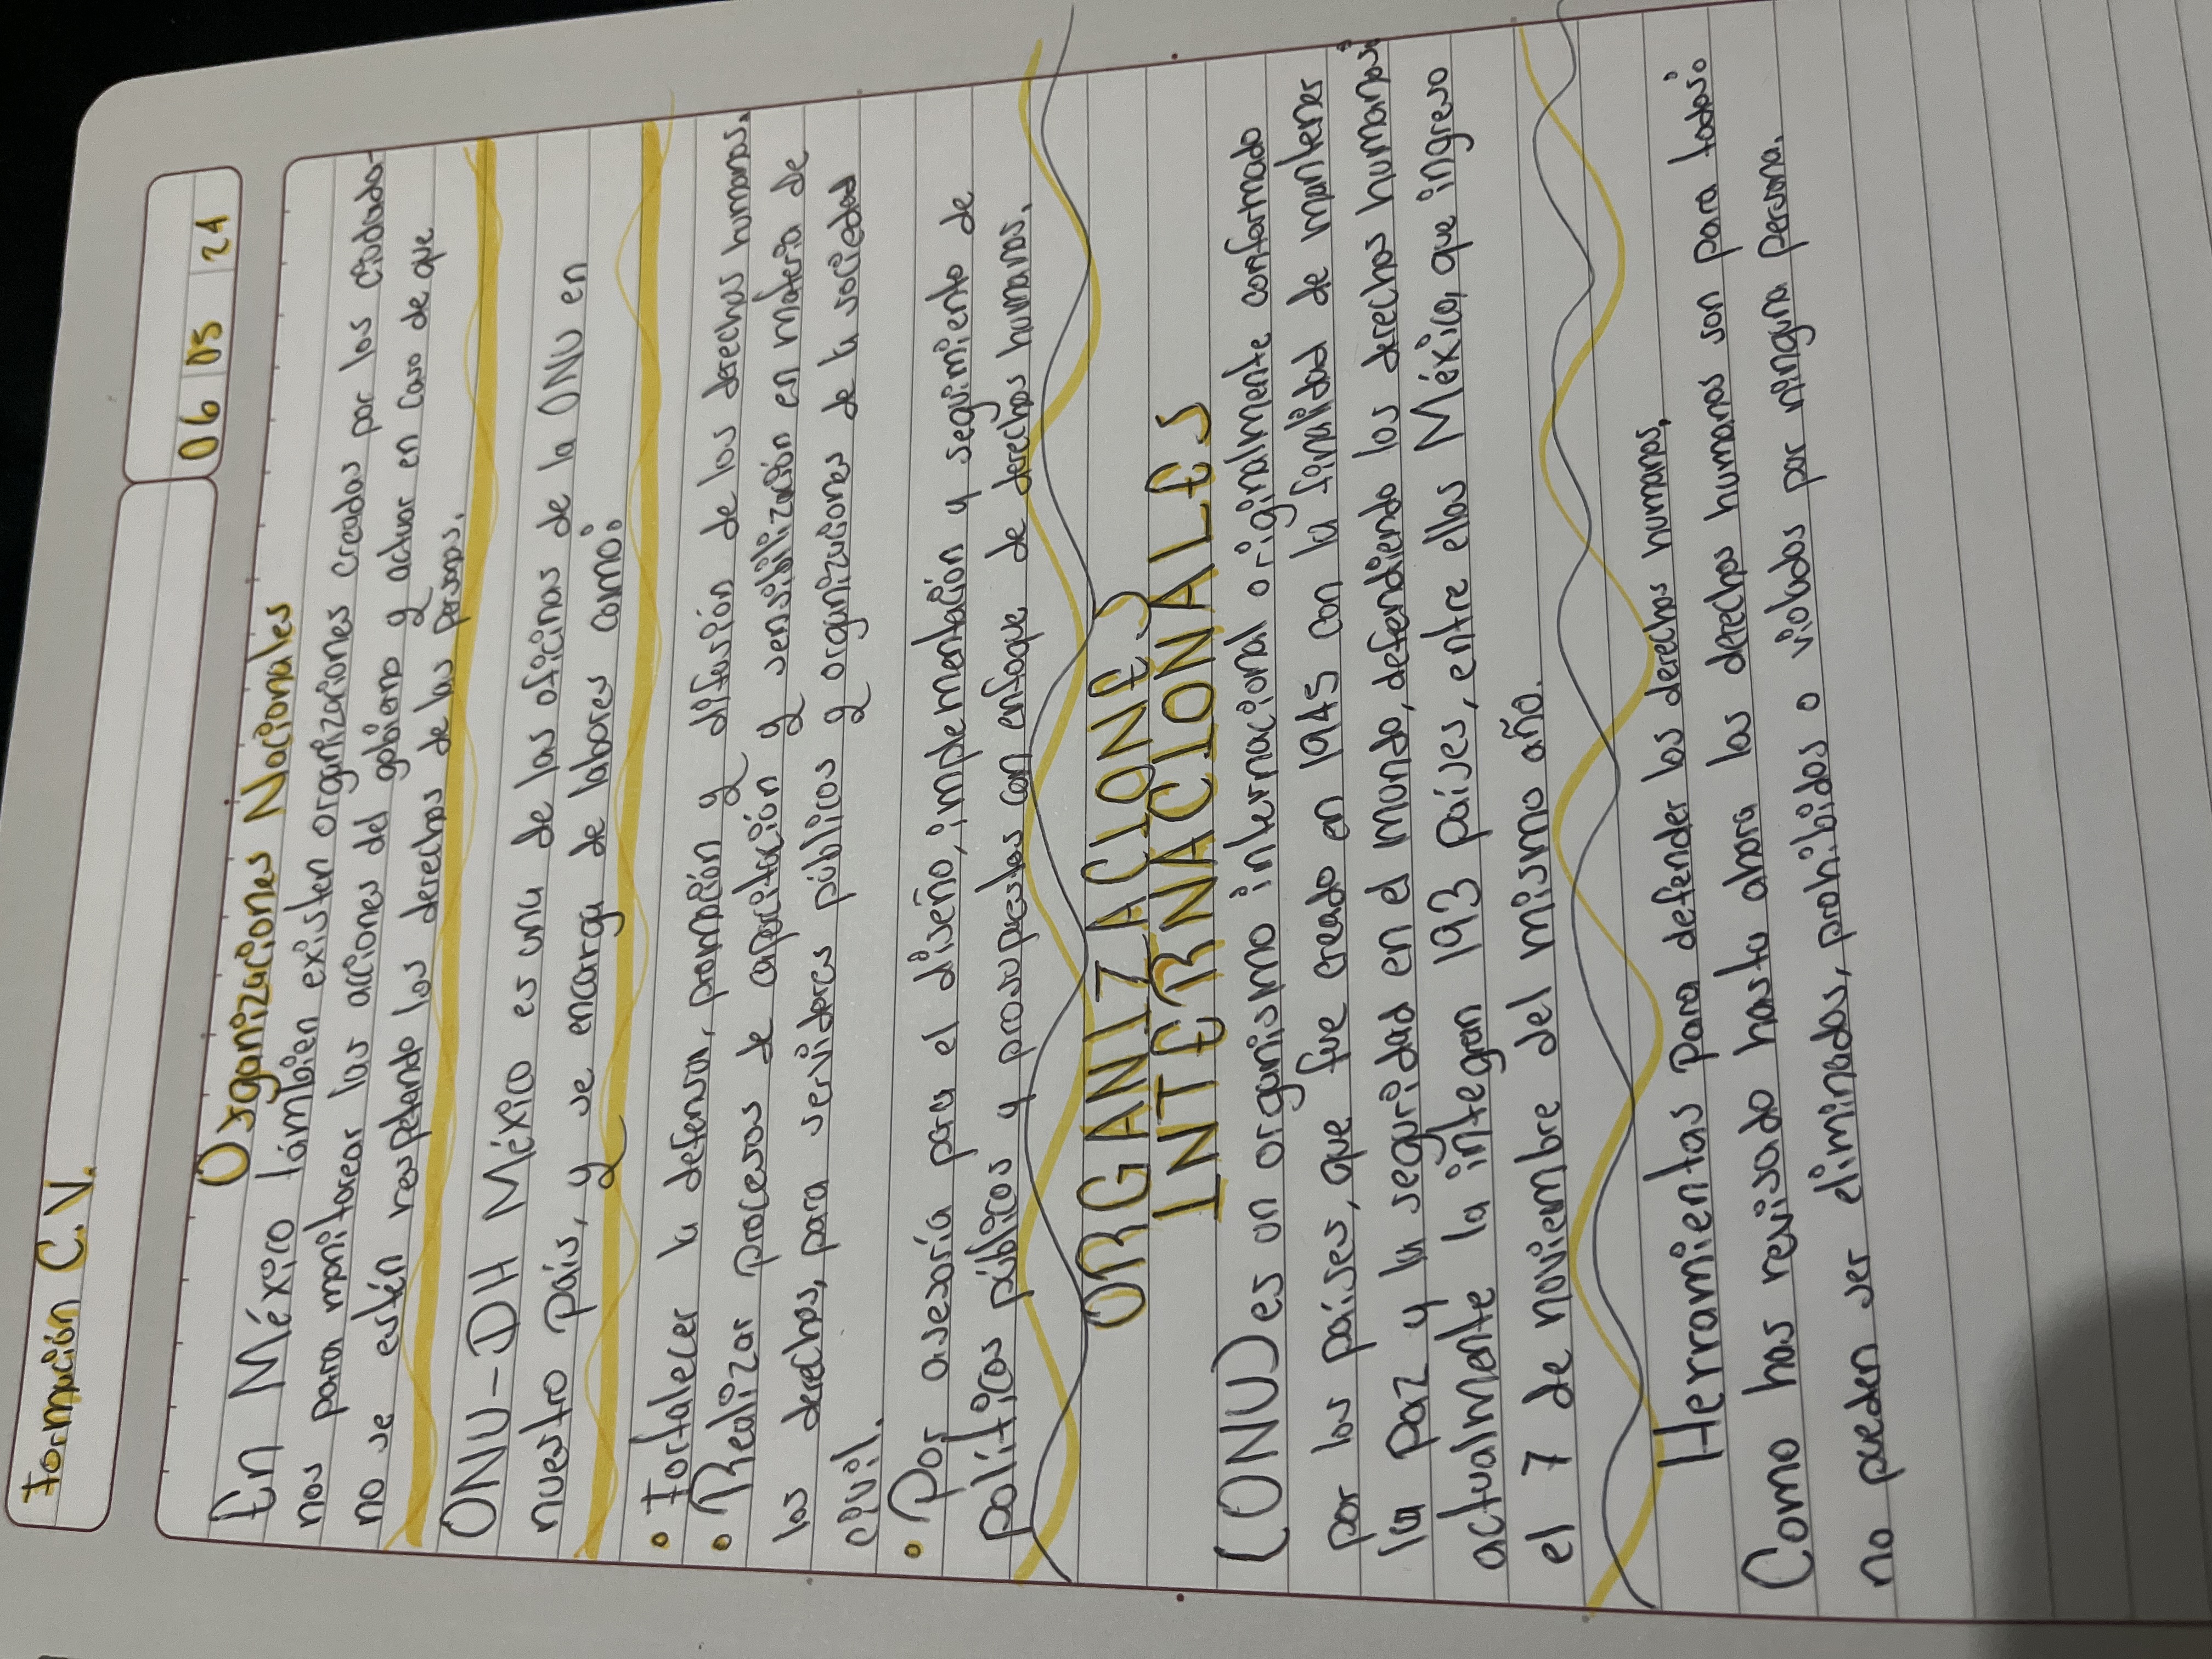 Formación C.V.
06 05 21
Organizaciones Nacionales
En México támbien existen organizaciones creadas por los ciudada-
nos para monitorear las acciones del gobierno y actuar en caso de que
no se estén respetando los derechos de las personas.
ONU-DH México es una de las oficinas de la ONU en
nuestro país, y se encarga de labores como:
• Fortalecer la defensa, promoción y difusión de los derechos humanos.
• Realizar procesos de capacitación y sensibilización en materia de
los derechos, para servidores públicos y organizaciones de la sociedad
civil.
• Por asesoría para el diseño, implementación y seguimiento de
políticas públicas y prosupuestos con enfoque de derechos humanos.
ORGANIZACIONES
INTERNACIONALES
(ONU) es un organismo internacional originalmente conformado
por los países, que fue creado en 1945 con la finalidad de mantener
la paz y la seguridad en el mundo, defendiendo los derechos humanos;
actualmente la integran 193 países, entre ellos México, que ingreso
el 7 de noviembre del mismo año.
Herramientas para defender los derechos humanos.
Como has revisado hasta ahora los derechos humanos son para todos:
no pueden ser eliminados, prohibidos o violados por ninguna persona.